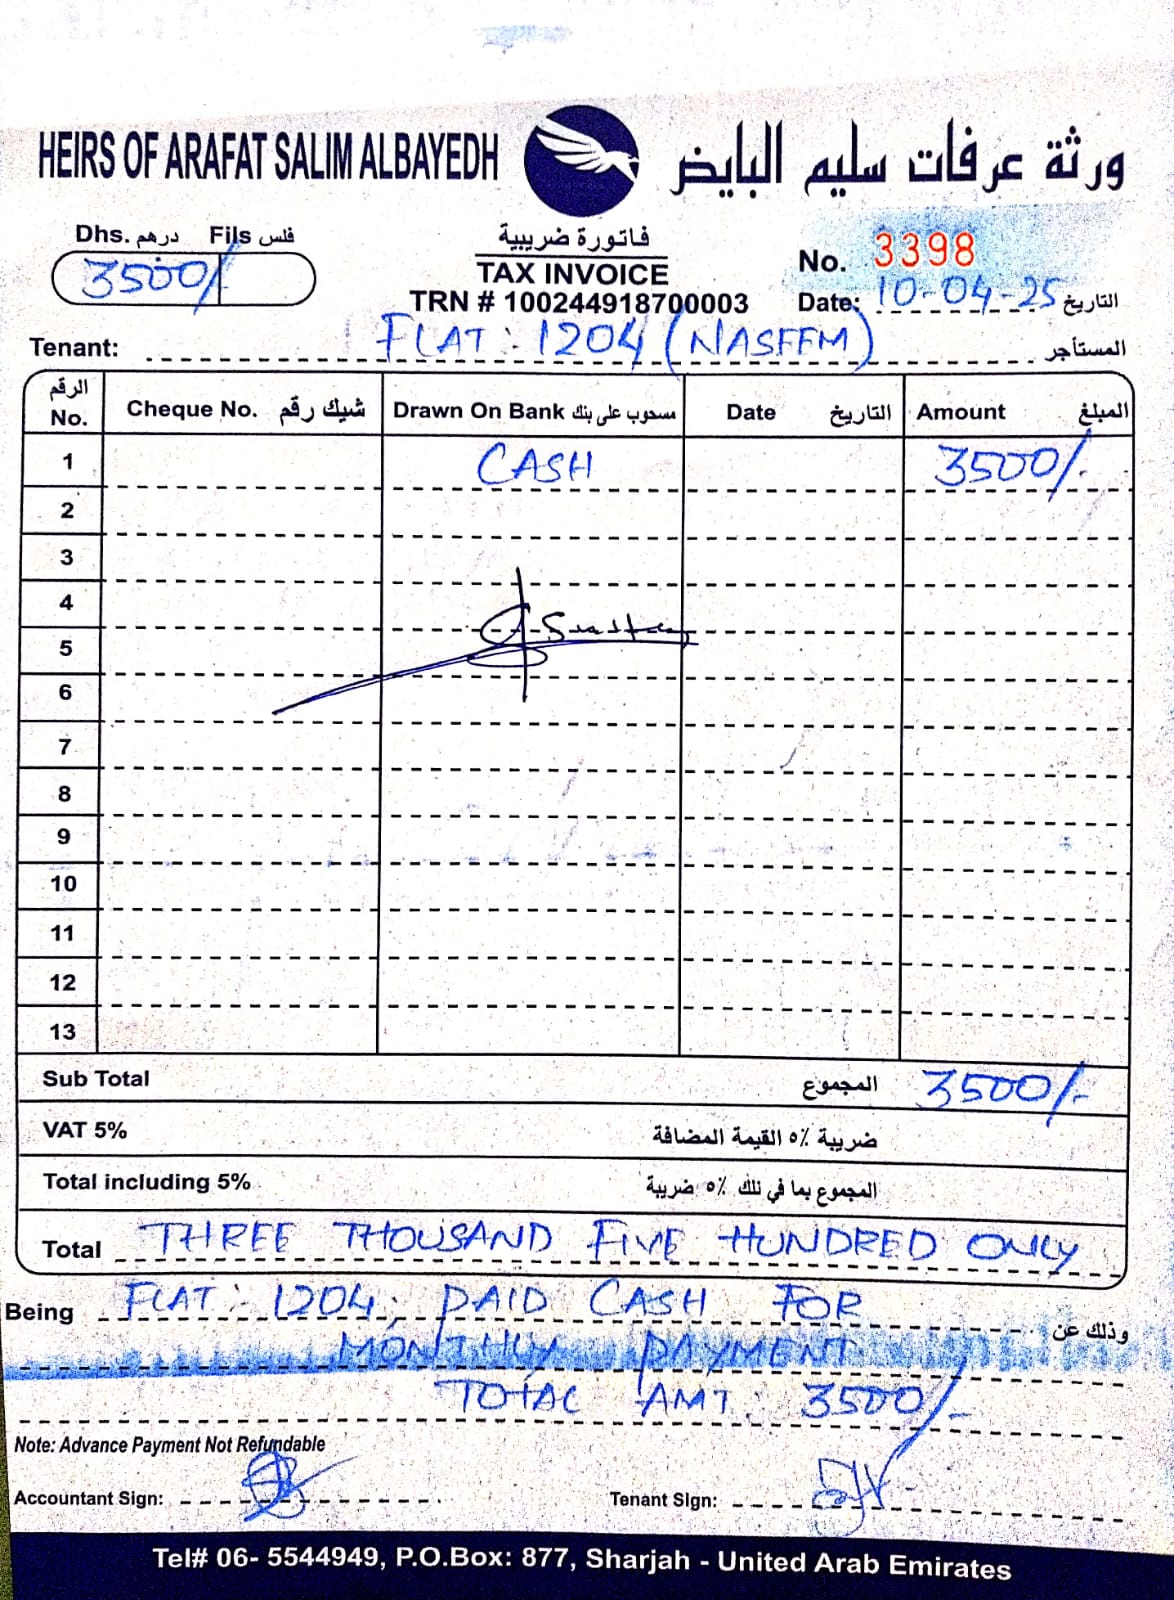 HEIRS OF ARAFAT SALIM ALBAYEDH
ورثة عرفات سليم البايض
Dhs. درهم Fils فلس
3500/
فاتورة ضريبية
TAX INVOICE
TRN # 100244918700003
No. 3398
Date: 10-04-25 التاريخ
Tenant: FLAT : 1204 (NASEEM) المستأجر
الرقم No. Cheque No. شيك رقم Drawn On Bank مسحوب على بنك Date التاريخ Amount المبلغ
1 CASH 3500/-
2
3
4
5
6
7
8
9
10
11
12
13
Sub Total المجموع 3500/-
VAT 5% ضريبة ٥٪ القيمة المضافة
Total including 5% المجموع بما في تلك ٥٪ ضريبة
Total THREE THOUSAND FIVE HUNDRED ONLY
Being FLAT : 1204, PAID CASH FOR وذلك عن
MONTHLY PAYMENT
TOTAL AMT : 3500/-
Note: Advance Payment Not Refundable
Accountant Sign: Tenant Sign:
Tel# 06- 5544949, P.O.Box: 877, Sharjah - United Arab Emirates